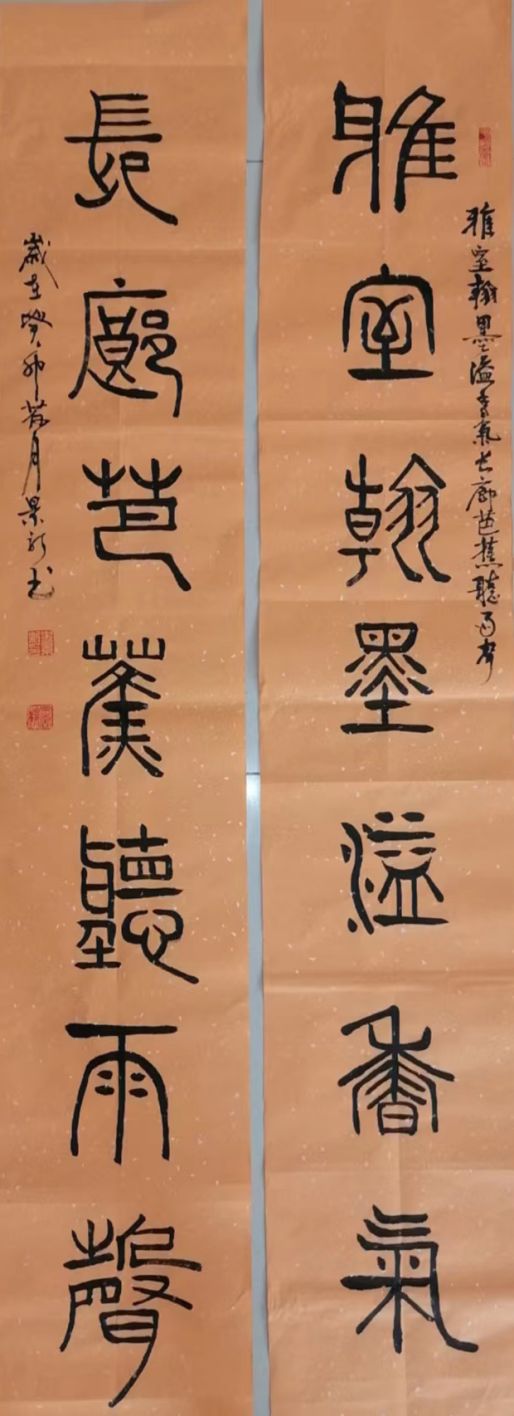 雅室翰墨溢香氣長廊芭蕉聽雨聲
雅室翰墨溢香氣
長廊芭蕉聽雨聲
歲在癸卯荷月景新書